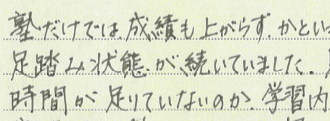 塾だけでは成績も上がらず、かといっ
足踏み状態が続いていました。
時間が足りていないのか、学習内